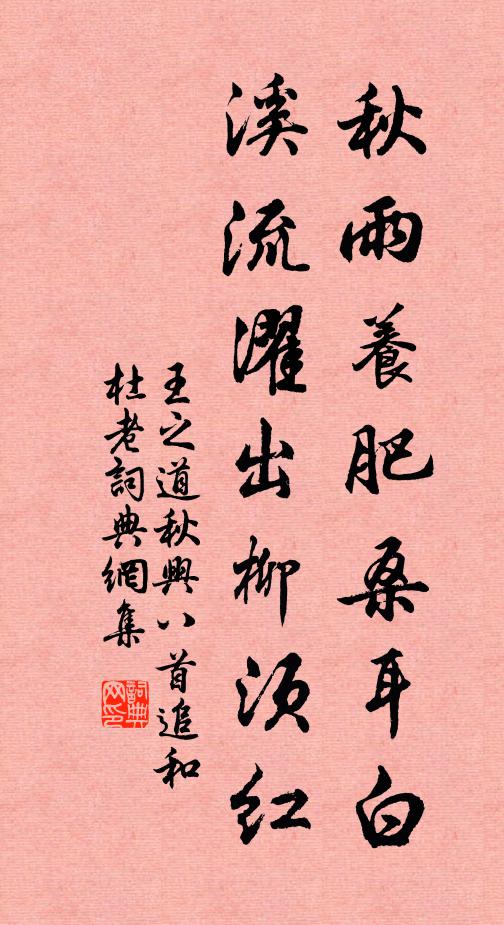 秋雨養肥桑耳白
溪流濯出柳須紅
王之道秋興八首追和
杜老詞典網集
詞典
网印